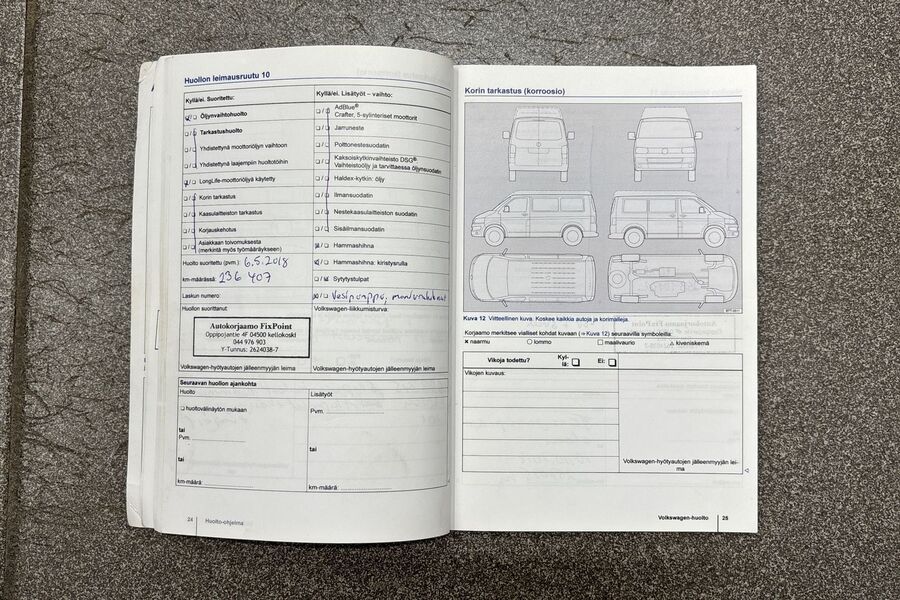 Huollon leimausruutu 10
Kyllä/ei. Suoritettu:
Öljynvaihtohuolto
Tarkastushuolto
Yhdistettynä moottoriöljyn vaihtoon
Yhdistettynä laajempiin huoltotöihin
LongLife-moottoriöljyä käytetty
Korin tarkastus
Kaasulaitteiston tarkastus
Korjauskehotus
Asiakkaan toivomuksesta
(merkintä myös työmääräykseen)
Huolto suoritettu (pvm.): 6.5.2018
km-määrässä: 236 407
Laskun numero:
Huollon suorittanut:
Autokorjaamo FixPoint
Oppipojantie 4F 04500 kellokoski
044 976 903
Y-Tunnus: 2624038-7
Volkswagen-hyötyautojen jälleenmyyjän leima
Kyllä/ei. Lisätyöt – vaihto:
AdBlue®
Crafter, 5-sylinteriset moottorit
Jarruneste
Polttonestesuodatin
Kaksoiskytkinvaihteisto DSG®:
Vaihteistoöljy ja tarvittaessa öljynsuodatin
Haldex-kytkin: öljy
Ilmansuodatin
Nestekaasulaitteen suodatin
Sisäilmansuodatin
Hammashihna
Hammashihna: kiristysrulla
Sytytystulpat
Vesipumppu,
Volkswagen-liikkumisturva:
Volkswagen-hyötyautojen jälleenmyyjän leima
Seuraavan huollon ajankohta
Huolto
huoltovälinäytön mukaan
tai
Pvm.
tai
km-määrä:
Lisätyöt
Pvm.
tai
km-määrä:
24 Huolto-ohjelma
Korin tarkastus (korroosio)
Kuva 12 Viitteellinen kuva. Koskee kaikkia autoja ja korimalleja.
Korjaamo merkitsee vialliset kohdat kuvaan (⇒Kuva 12) seuraavilla symboleilla:
naarmu lommo maalivaurio kiveniskemä
Vikoja todettu? Kyl-
lä: Ei:
Vikojen kuvaus:
Volkswagen-hyötyautojen jälleenmyyjän lei-
ma
Volkswagen-huolto 25